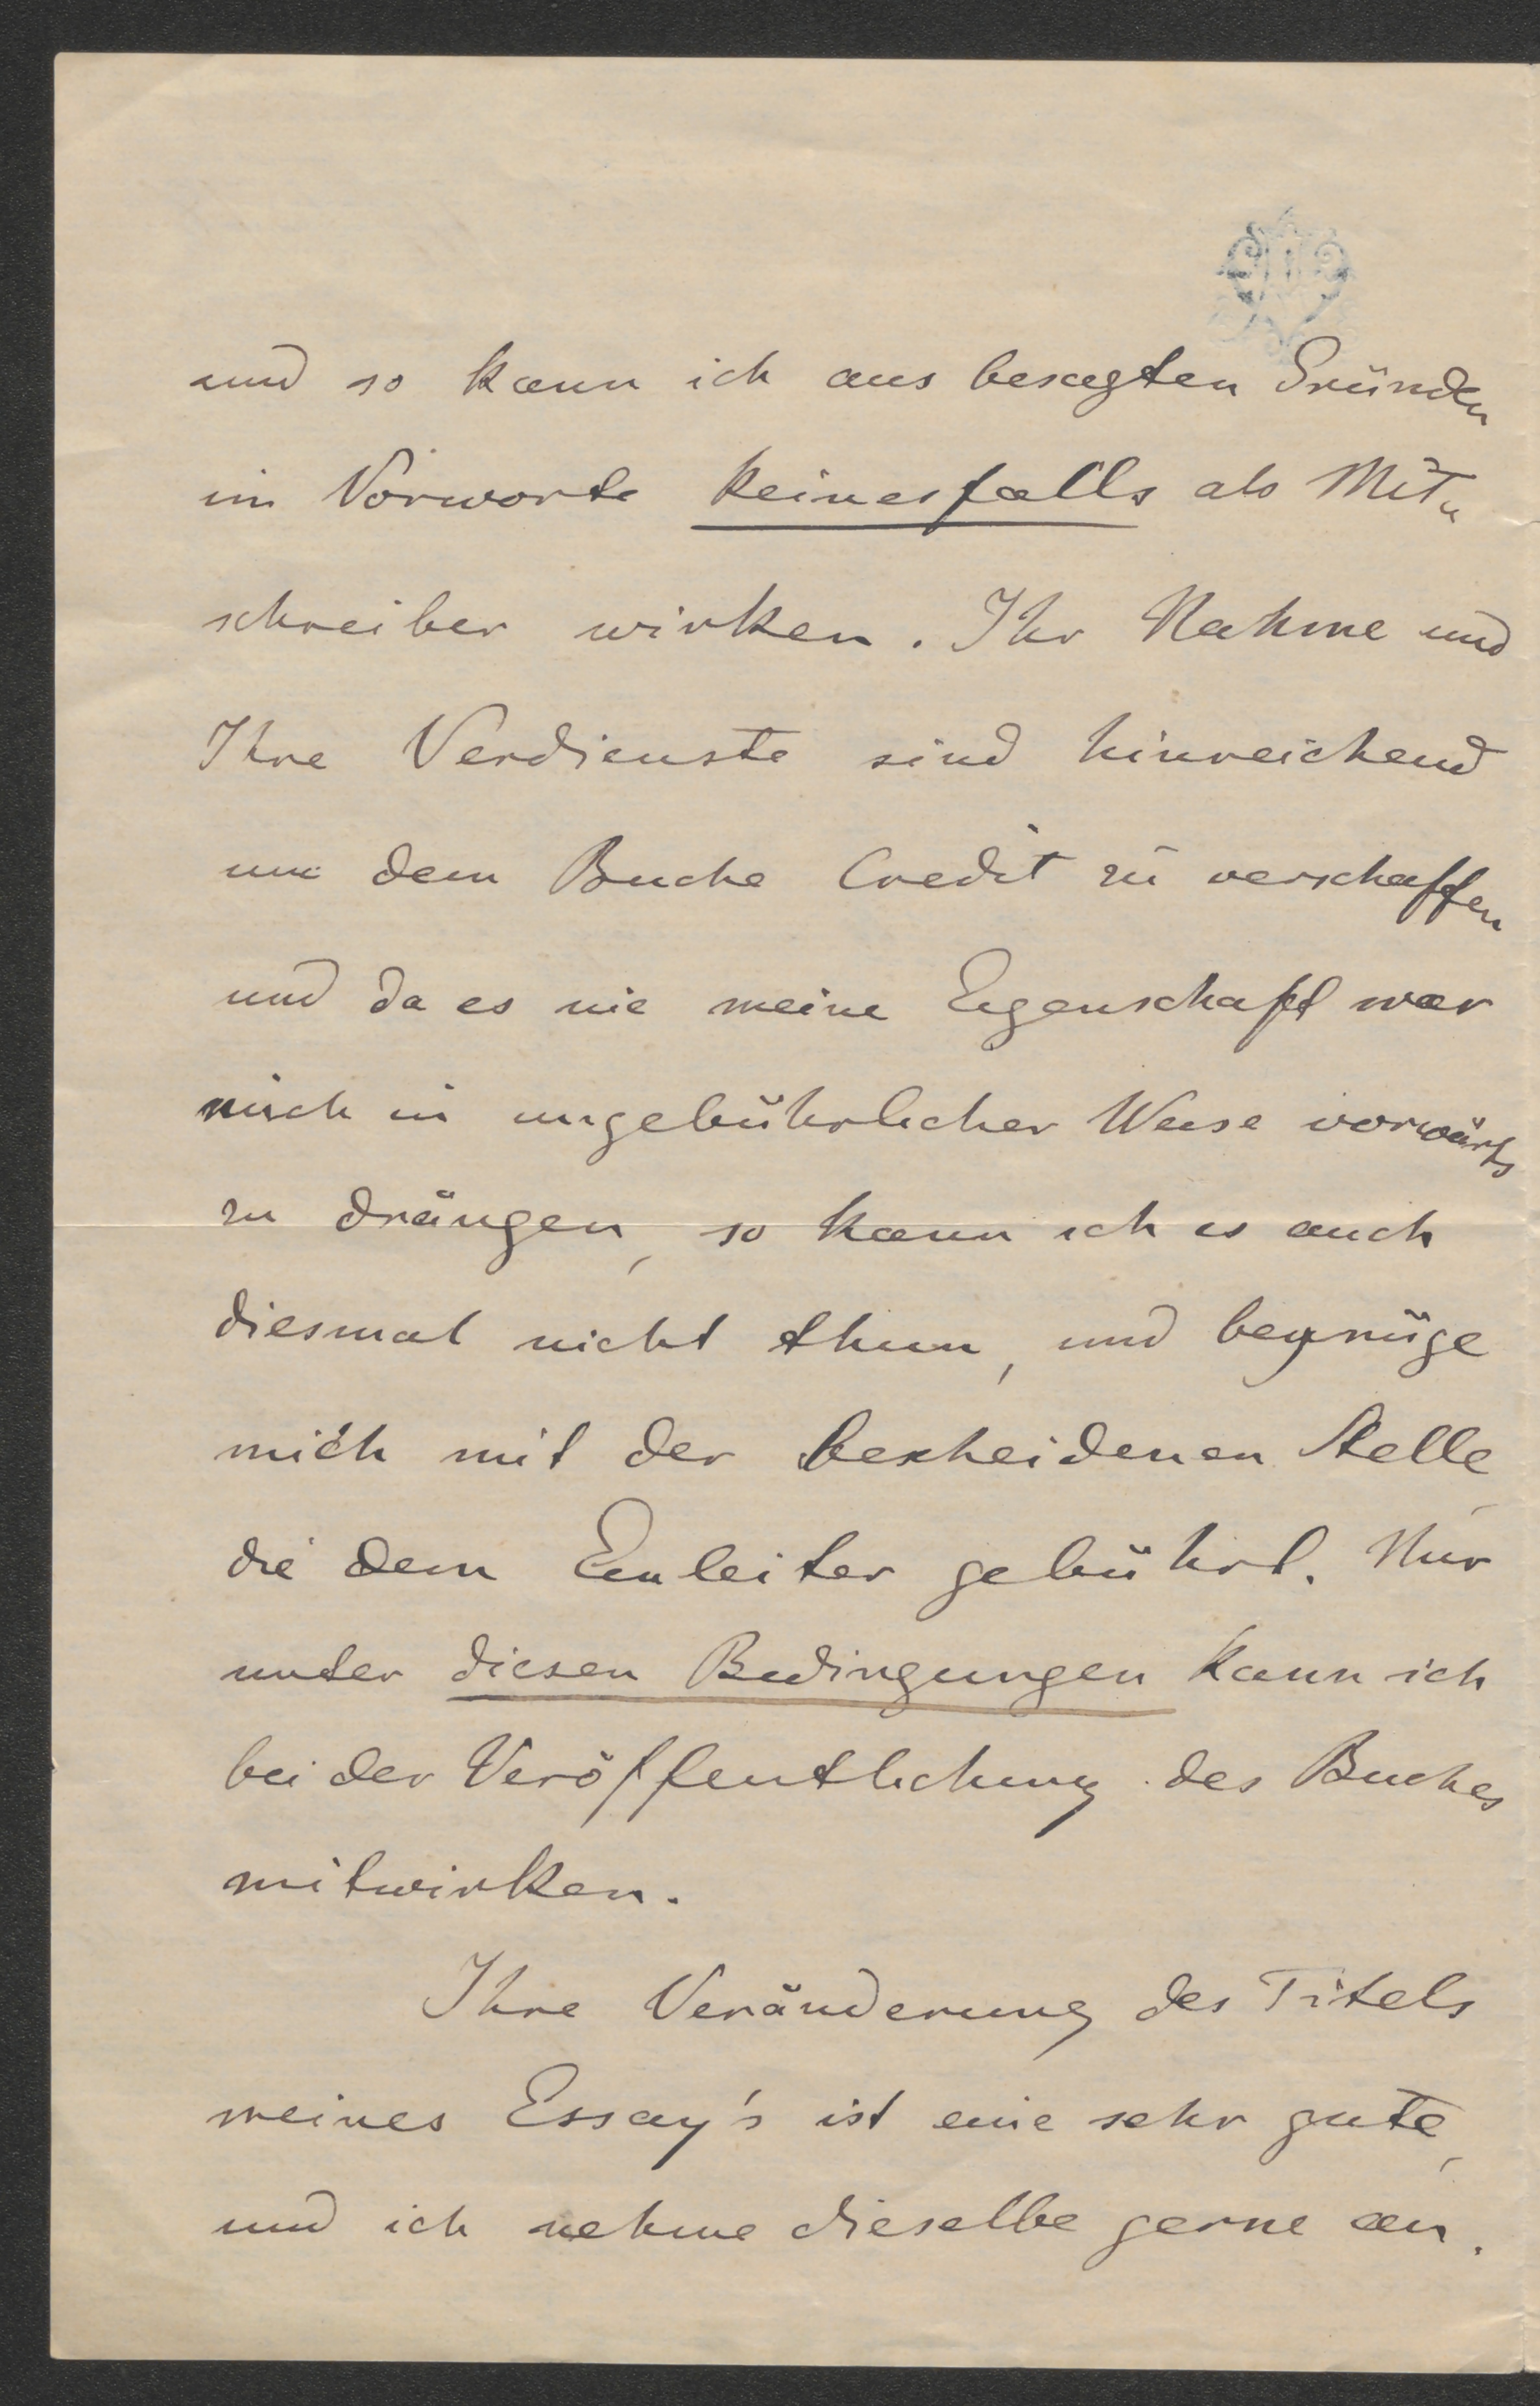 und so kann ich aus besagten Gründen
im Vorworte keinesfalls als Mit„
schreiber wirken. Ihr Nahme und
Ihre Verdienste sind hinreichend
um dem Buche Credit zu verschaffen
und da es nie meine Eigenschaft war
mich in ungebührlicher Weise vorwärts
zu drängen, so kann ich es auch
diesmal nicht thun, und begnüge
mich mit der bescheidenen Stelle,
die dem Einleiter gebührt. Nur
unter diesen Bedingungen kann ich
bei der Veröffentlichung des Buches
mitwirken.
Ihre Veränderung des Titels
meines Essay's ist eine sehr gute,
und ich nehme dieselbe gerne an.